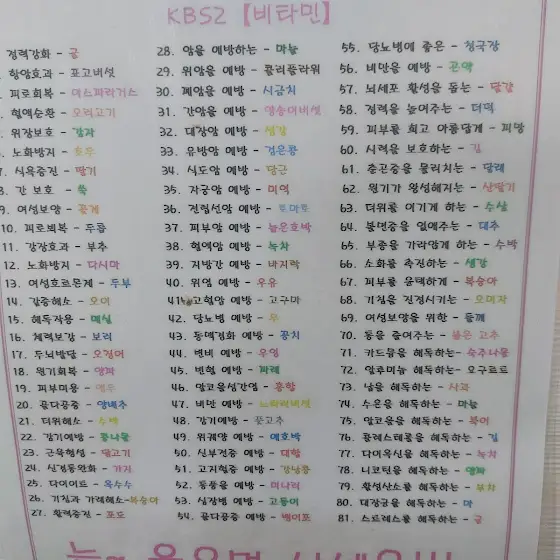 KBS2 【비타민】
정력강화 - 굴
항암효과 - 표고버섯
피로회복 - 아스파라거스
혈액순환 - 오리고기
위장보호 - 감자
노화방지 - 호두
식욕증진 - 딸기
간 보호 - 쑥
여성보약 - 꽃게
10. 피로회복 - 두릅
11. 강장효과 - 부추
12. 노화방지 - 다시마
13. 여성호르몬계 - 두부
14. 갈증해소 - 오이
15. 해독작용 - 매실
16. 체력보강 - 보리
17. 두뇌발달 - 오징어
18. 원기회복 - 양파
19. 피부미용 -
20. 골다공증 - 양배추
21. 더위해소 - 수박
22. 감기예방 - 콩나물
23. 근육형성 - 닭고기
24. 신경통완화 - 가지
25. 다이어트 - 옥수수
26. 기침과 가래해소-복숭아
27. 활력증진 - 포도
28. 암을 예방하는 - 마늘
29. 위암을 예방 - 콜리플라워
30. 폐암을 예방 - 시금치
31. 간암을 예방 - 양송이버섯
32. 대장암 예방 - 생강
33. 유방암 예방 - 검은콩
34. 식도암 예방 - 당근
35. 자궁암 예방 - 미역
36. 전립선암 예방 - 토마토
37. 피부암 예방 - 늙은호박
38. 혈액암 예방 - 녹차
39. 지방간 예방 - 바지락
40. 위염 예방 - 우유
41. 고혈압 예방 - 고구마
42. 당뇨병 예방 - 무
43. 동맥경화 예방 - 꽁치
44. 변비 예방 - 우엉
45. 빈혈 예방 - 파래
46. 알코올성간염 - 홍합
47. 비만 예방 - 느타리버섯
48. 감기예방 - 풋고추
49. 위궤양 예방 - 애호박
50. 신부전증 예방 - 대합
51. 고지혈증 예방 - 강낭콩
52. 동풍을 예방 - 미나리
53. 심장병 예방 - 고등어
54. 골다공증 예방 - 뱅어포
55. 당뇨병에 좋은 - 청국장
56. 비만을 예방 - 곤약
57. 뇌세포 활성을 돕는 - 달걀
58. 정력을 높여주는 - 더덕
59. 피부를 희고 아름답게 - 피망
60. 시력을 보호하는 - 김
61. 춘곤증을 물리치는 - 달래
62. 원기가 왕성해지는 - 산딸기
63. 더위를 이기게 하는 - 수삼
64. 불면증을 없애주는 - 대추
65. 부종을 가라앉게 하는 - 수박
66. 소화를 촉진하는 - 생강
67. 피부를 윤택하게 - 복숭아
68. 기침을 진정시키는 - 오미자
69. 여성보양을 위한 - 들깨
70. 통을 줄여주는 - 붉은 고추
71. 카드뮴을 해독하는- 숙주나물
72. 알루미늄 해독하는- 요구르트
73. 납을 해독하는 - 사과
74. 수은을 해독하는 - 마늘
75. 알코올을 해독하는 - 북어
76. 콜레스테롤을 해독하는 - 김
77. 다이옥신을 해독하는 - 녹차
78. 니코틴을 해독하는 - 양파
79. 활성산소를 해독하는 - 부추
80. 대장균을 해독하는 - 마
81. 스트레스를 해독하는 - 굴